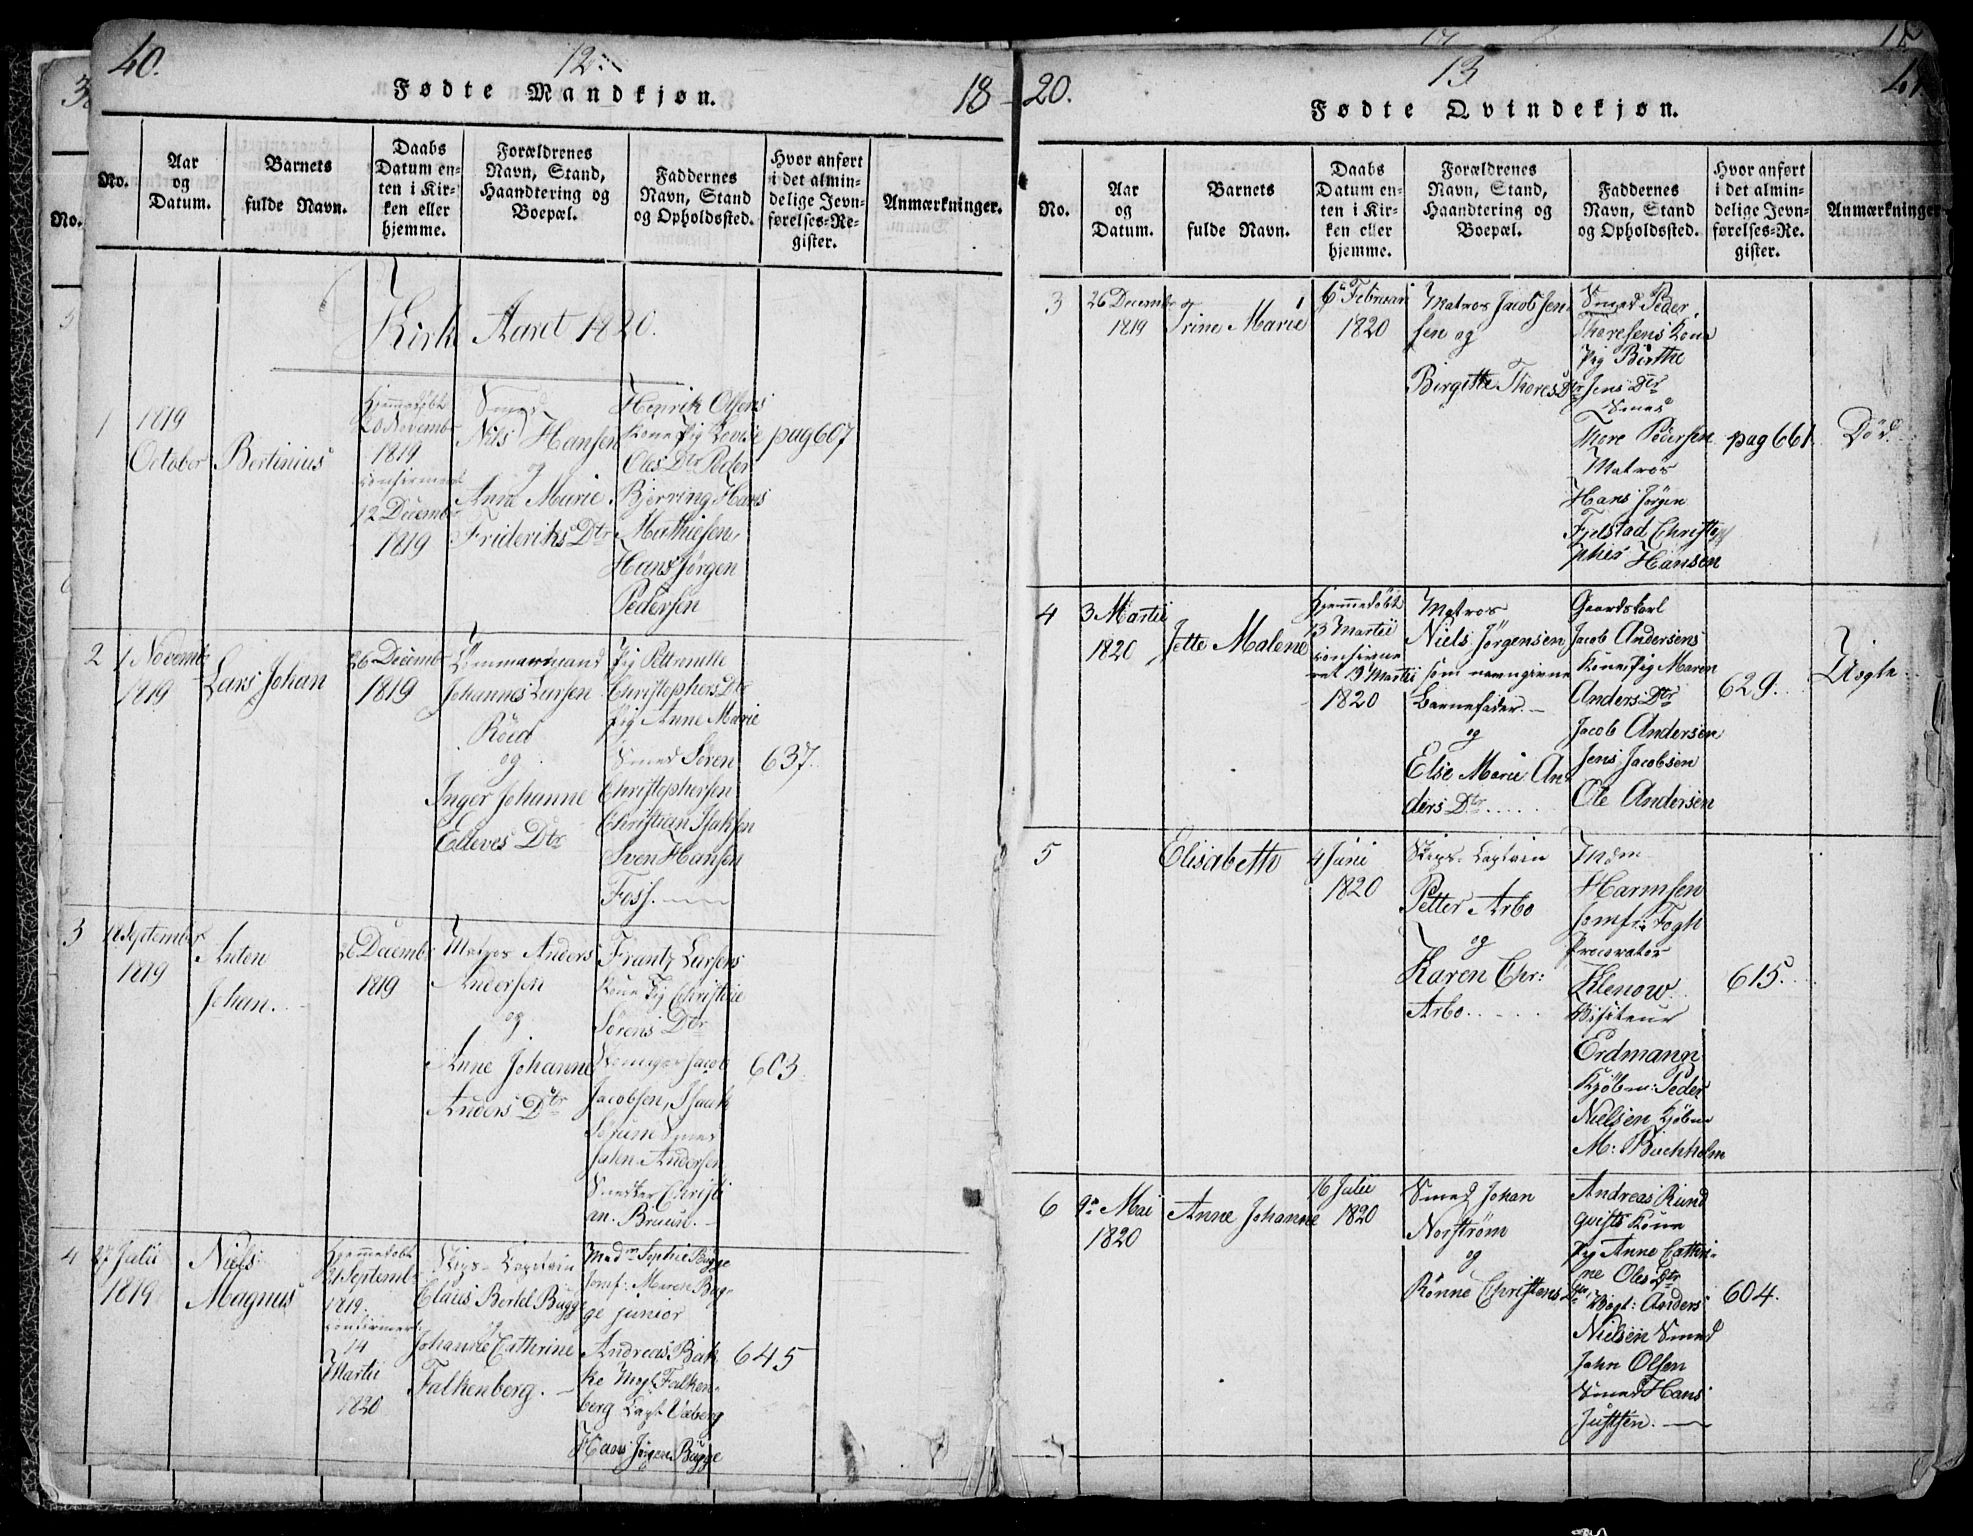 40.
12.
Fødte Mandkjøn.
18
No.
Aar og Datum.
Barnets fulde Navn.
Daabs Datum enten i Kirken eller hjemme.
Forældrenes Navn, Stand, Haandtering og Boepæl.
Faddernes Navn, Stand og Opholdssted.
Hvor anført i det almindelige Jevnførelses-Register.
Anmærkninger.
Kirke Aaret 1820.
1
1819
October
Bertinius
Hjemmedøbt
20 Novembr
1819
confirmeret
12 Decembr
1819
Smed
Nils Hansen
og
Anne Marie
Frideriks Dtr
Henrik Olsens
Kone Pig Lovise
Oles Dtr Peder
Bjerring Hans
Mathiesen,
Hans Jørgen
Pedersen
pag 607
2
1 Novembr
1819
Lars Johan
26 Decembr
1819
Tømmermand
Johannes Larsen
Röed
og
Inger Johanne
Ellevs Dtr
Pig Petternelle
Christophers Dtr
Pig Anne Marie
Smed Søren
Christophersen
Christian Isaksen
Sven Hansen
Foss.
637.
3
September
1819
Anton
Johan.
26 Decembr
1819
Matros Anders
Andersen
og
Anne Johanne
Anders Dtr
Frantz Larsens
Kone Pig Christine
Sörens Dtr
Jacob
Jacobsen, Isaak
Smed
Andersen
Christi
an. Bruun.
603.
4
27 Julii
1819
Niels
Magnus
Hjemmedøbt
21 Septembr
1819.
confirmeret
14
Martii
1820
Skips-Captein
Claus Bertel Bugge
og
Johanne Cathrine
Falkenberg.
Mad. Sophie Bugge
Jomf: Maren Bug-
ge junior
Andreas Bak
ke Falken-
berg Capt
Hans Jørgen Bügge
645
20.
13
41
Fødte Qvindekjøn.
No.
Aar og Datum.
Barnets fulde Navn.
Daabs Datum enten i Kirken eller hjemme.
Forældrenes Navn, Stand, Haandtering og Boepæl.
Faddernes Navn, Stand og Opholdssted.
Hvor anført i det almindelige Jevnførelses-Register.
Anmærkninger
3
26 Decembr
1819
Trine Marie
6 Februari
1820
Matros Jacob Jen
sen og
Birgitte Thores Dtr
Smed Peder
Thoresens Kone
Pig Birthe
Jens Dtr
Smed
Thore Pedersen
Matros
Hans Jørgen
Fjelstad Christo
pher Hansen
pag 661
Död.
4
3 Martii
1820
Jette Malene
Hjemmedøbt
13 Martii
confirme
ret 19 Martii
1820
Matros
Niels Jørgensen
som navngivne
Barnefader.
og
Else Marie An
ders Dtr
Gaardskarl
Jacob Andersens
Kone, Pig Maren
Anders Dtr
Jacob Andersen
Jens Jacobsen
Ole Andersen
629.
Uægte.
5
Elisabeth
4 Juni
1820
Skips-Captein
Petter Arbo
og
Karen Chr:
Arbo
Mdm
Harmsen
Jomfr: Fogh
Procorator
Klenow
Visiteur
Erdmann
Kjøbm: Peder
Nielsen Kjøbm
M: Buchholm
615.
6
9 Mai
1820
Anne Johanne
16 Julii
1820
Smed Johan
Norström
og
Rønne Christens Dtr
Andreas Rund
qvists Kone
Pig Anne Cathri-
ne Oles Dtr
Vogt: Anders
Nielsen Smed
John Olsen
Smed Hans
Justsen.
604.